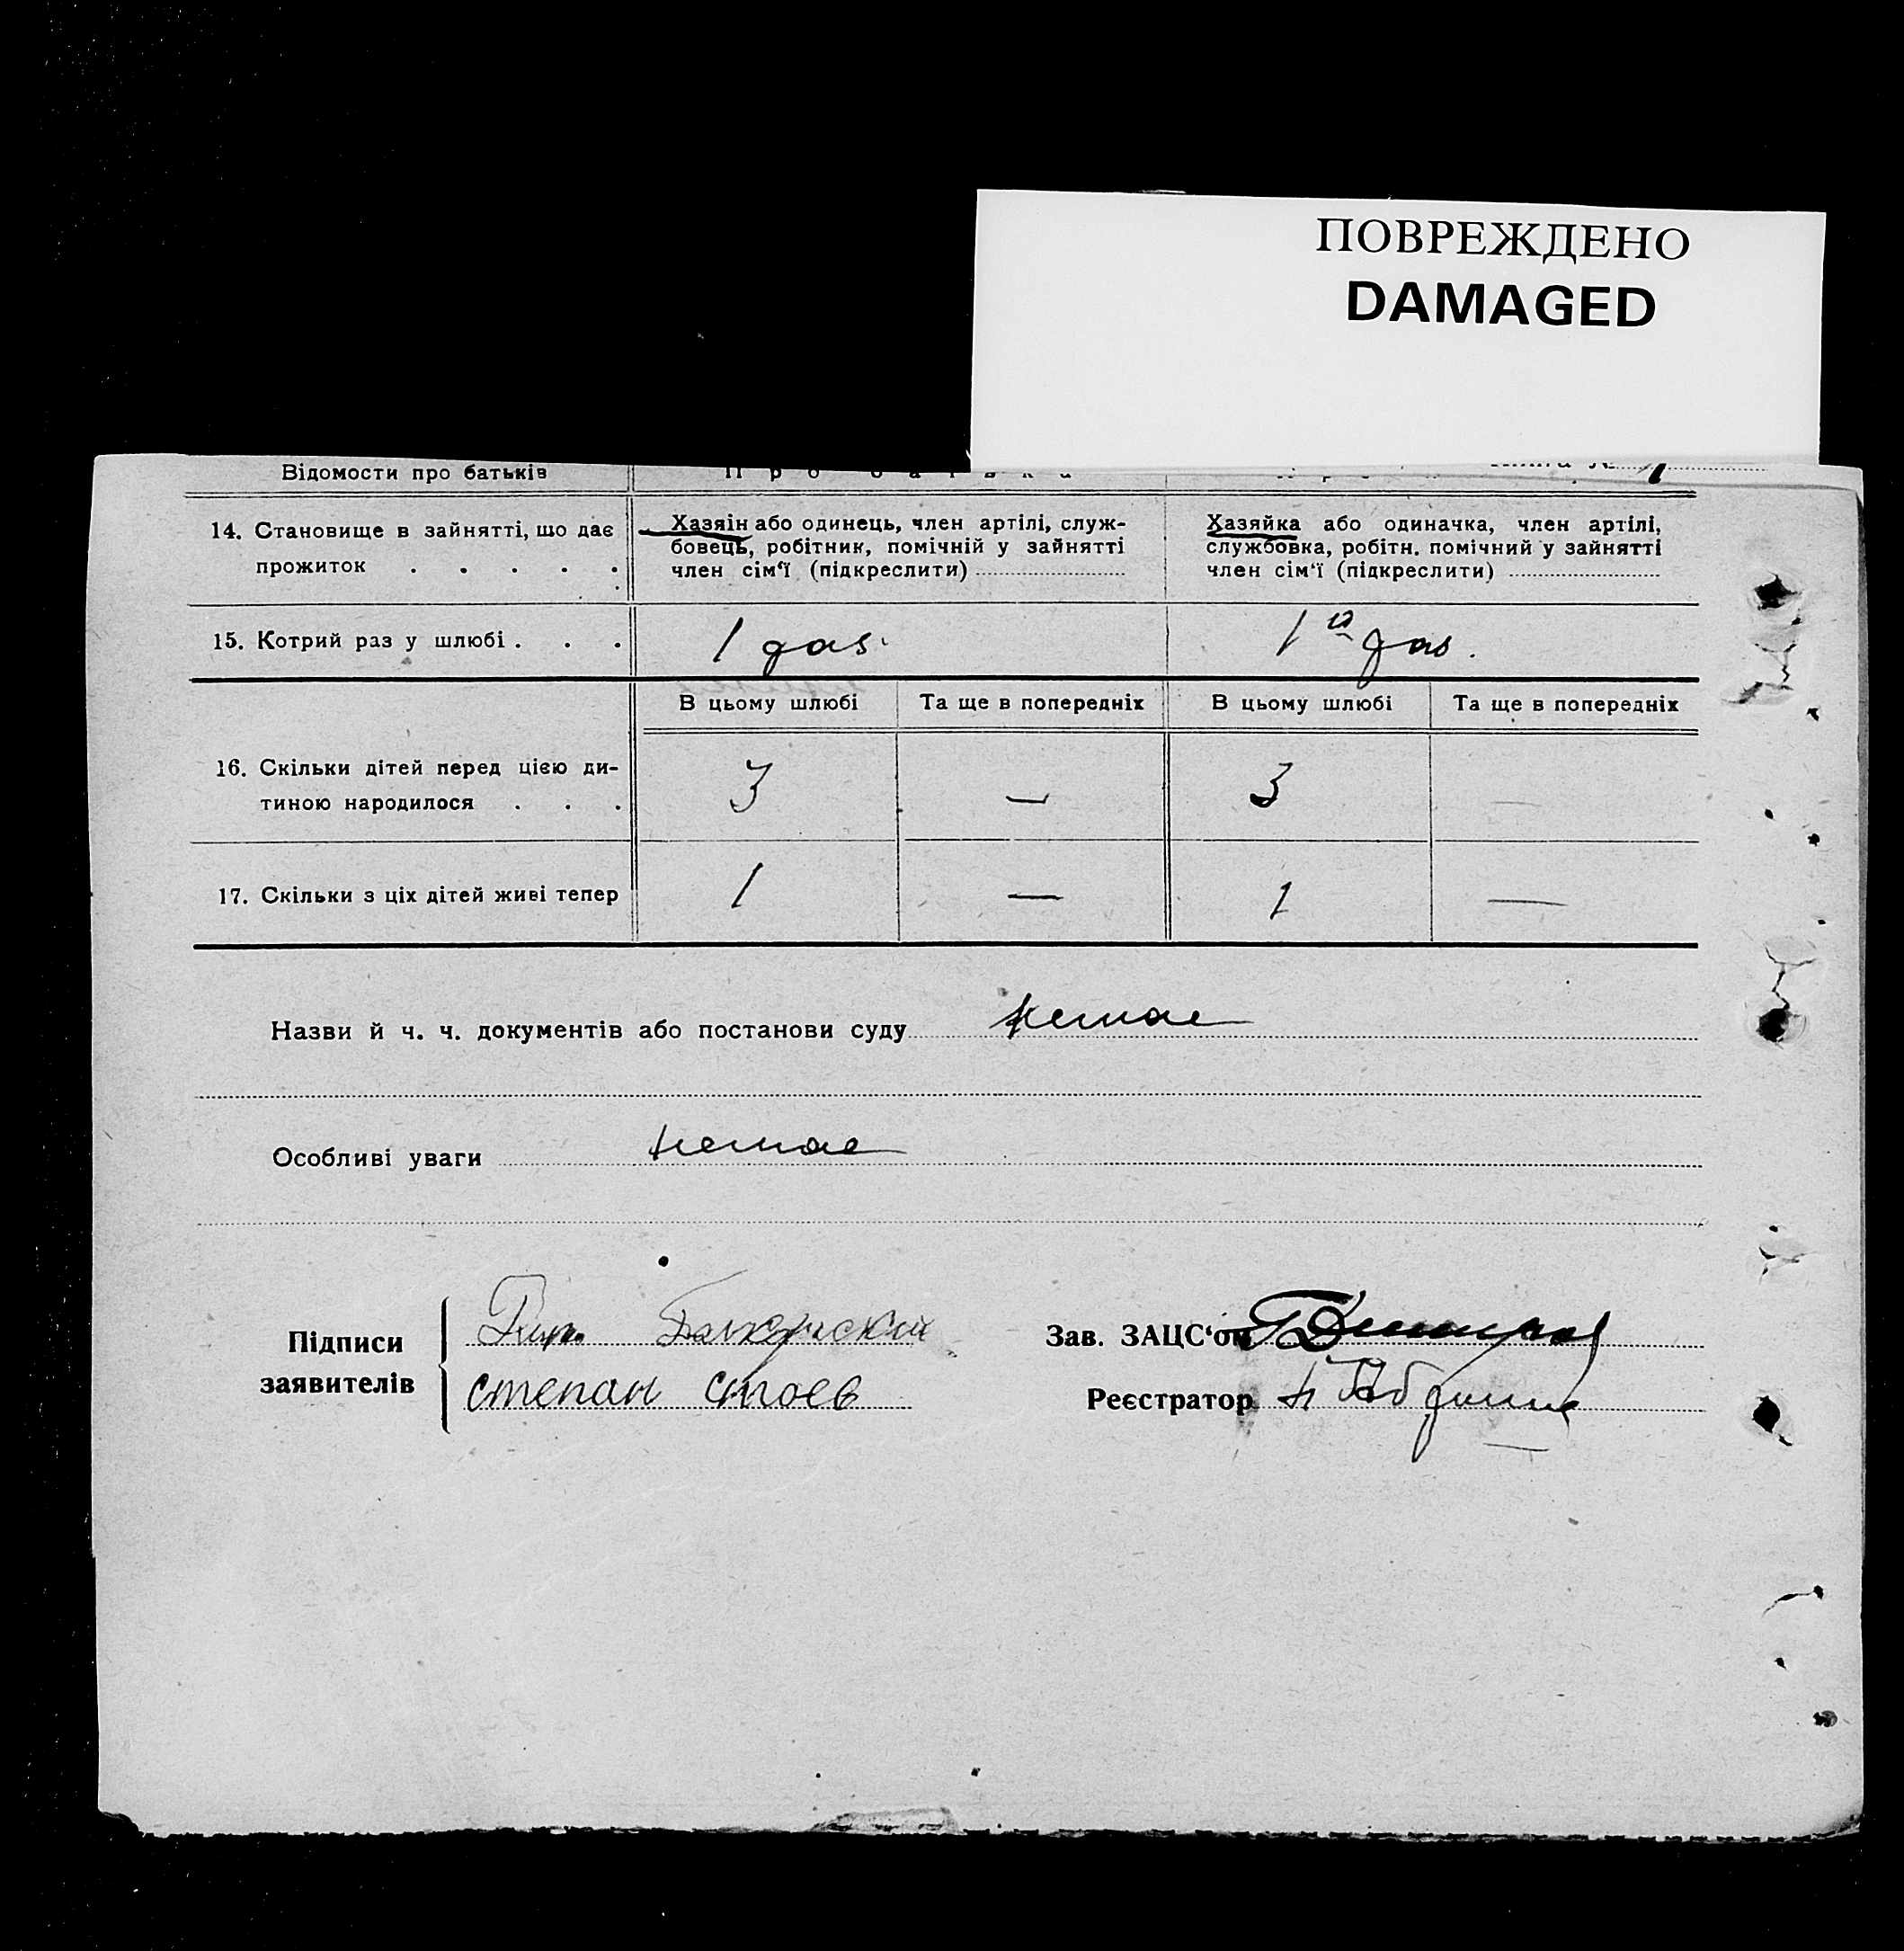 ПОВРЕЖДЕНО
DAMAGED
Відомости про батьків
14. Становище в зайнятті, що дає прожиток . . . . .
Хазяїн або одинець, член артілі, служ-
бовець, робітник, помічній у зайнятті
член сім'ї (підкреслити)
Хазяйка або одиначка, член артілі,
службовка, робітн. помічний у зайнятті
член сім'ї (підкреслити)
15. Котрий раз у шлюбі . . .
1
1
В цьому шлюбі Та ще в попередніх В цьому шлюбі Та ще в попередніх
16. Скільки дітей перед цією ди-
тиною народилося . . .
3 — 3 —
17. Скільки з ціх дітей живі тепер 1 — 1 —
Назви й ч. ч. документів або постанови суду немає
Особливі уваги немає
Підписи
заявителів
степан стоев
Зав. ЗАЦС'ом
Реєстратор